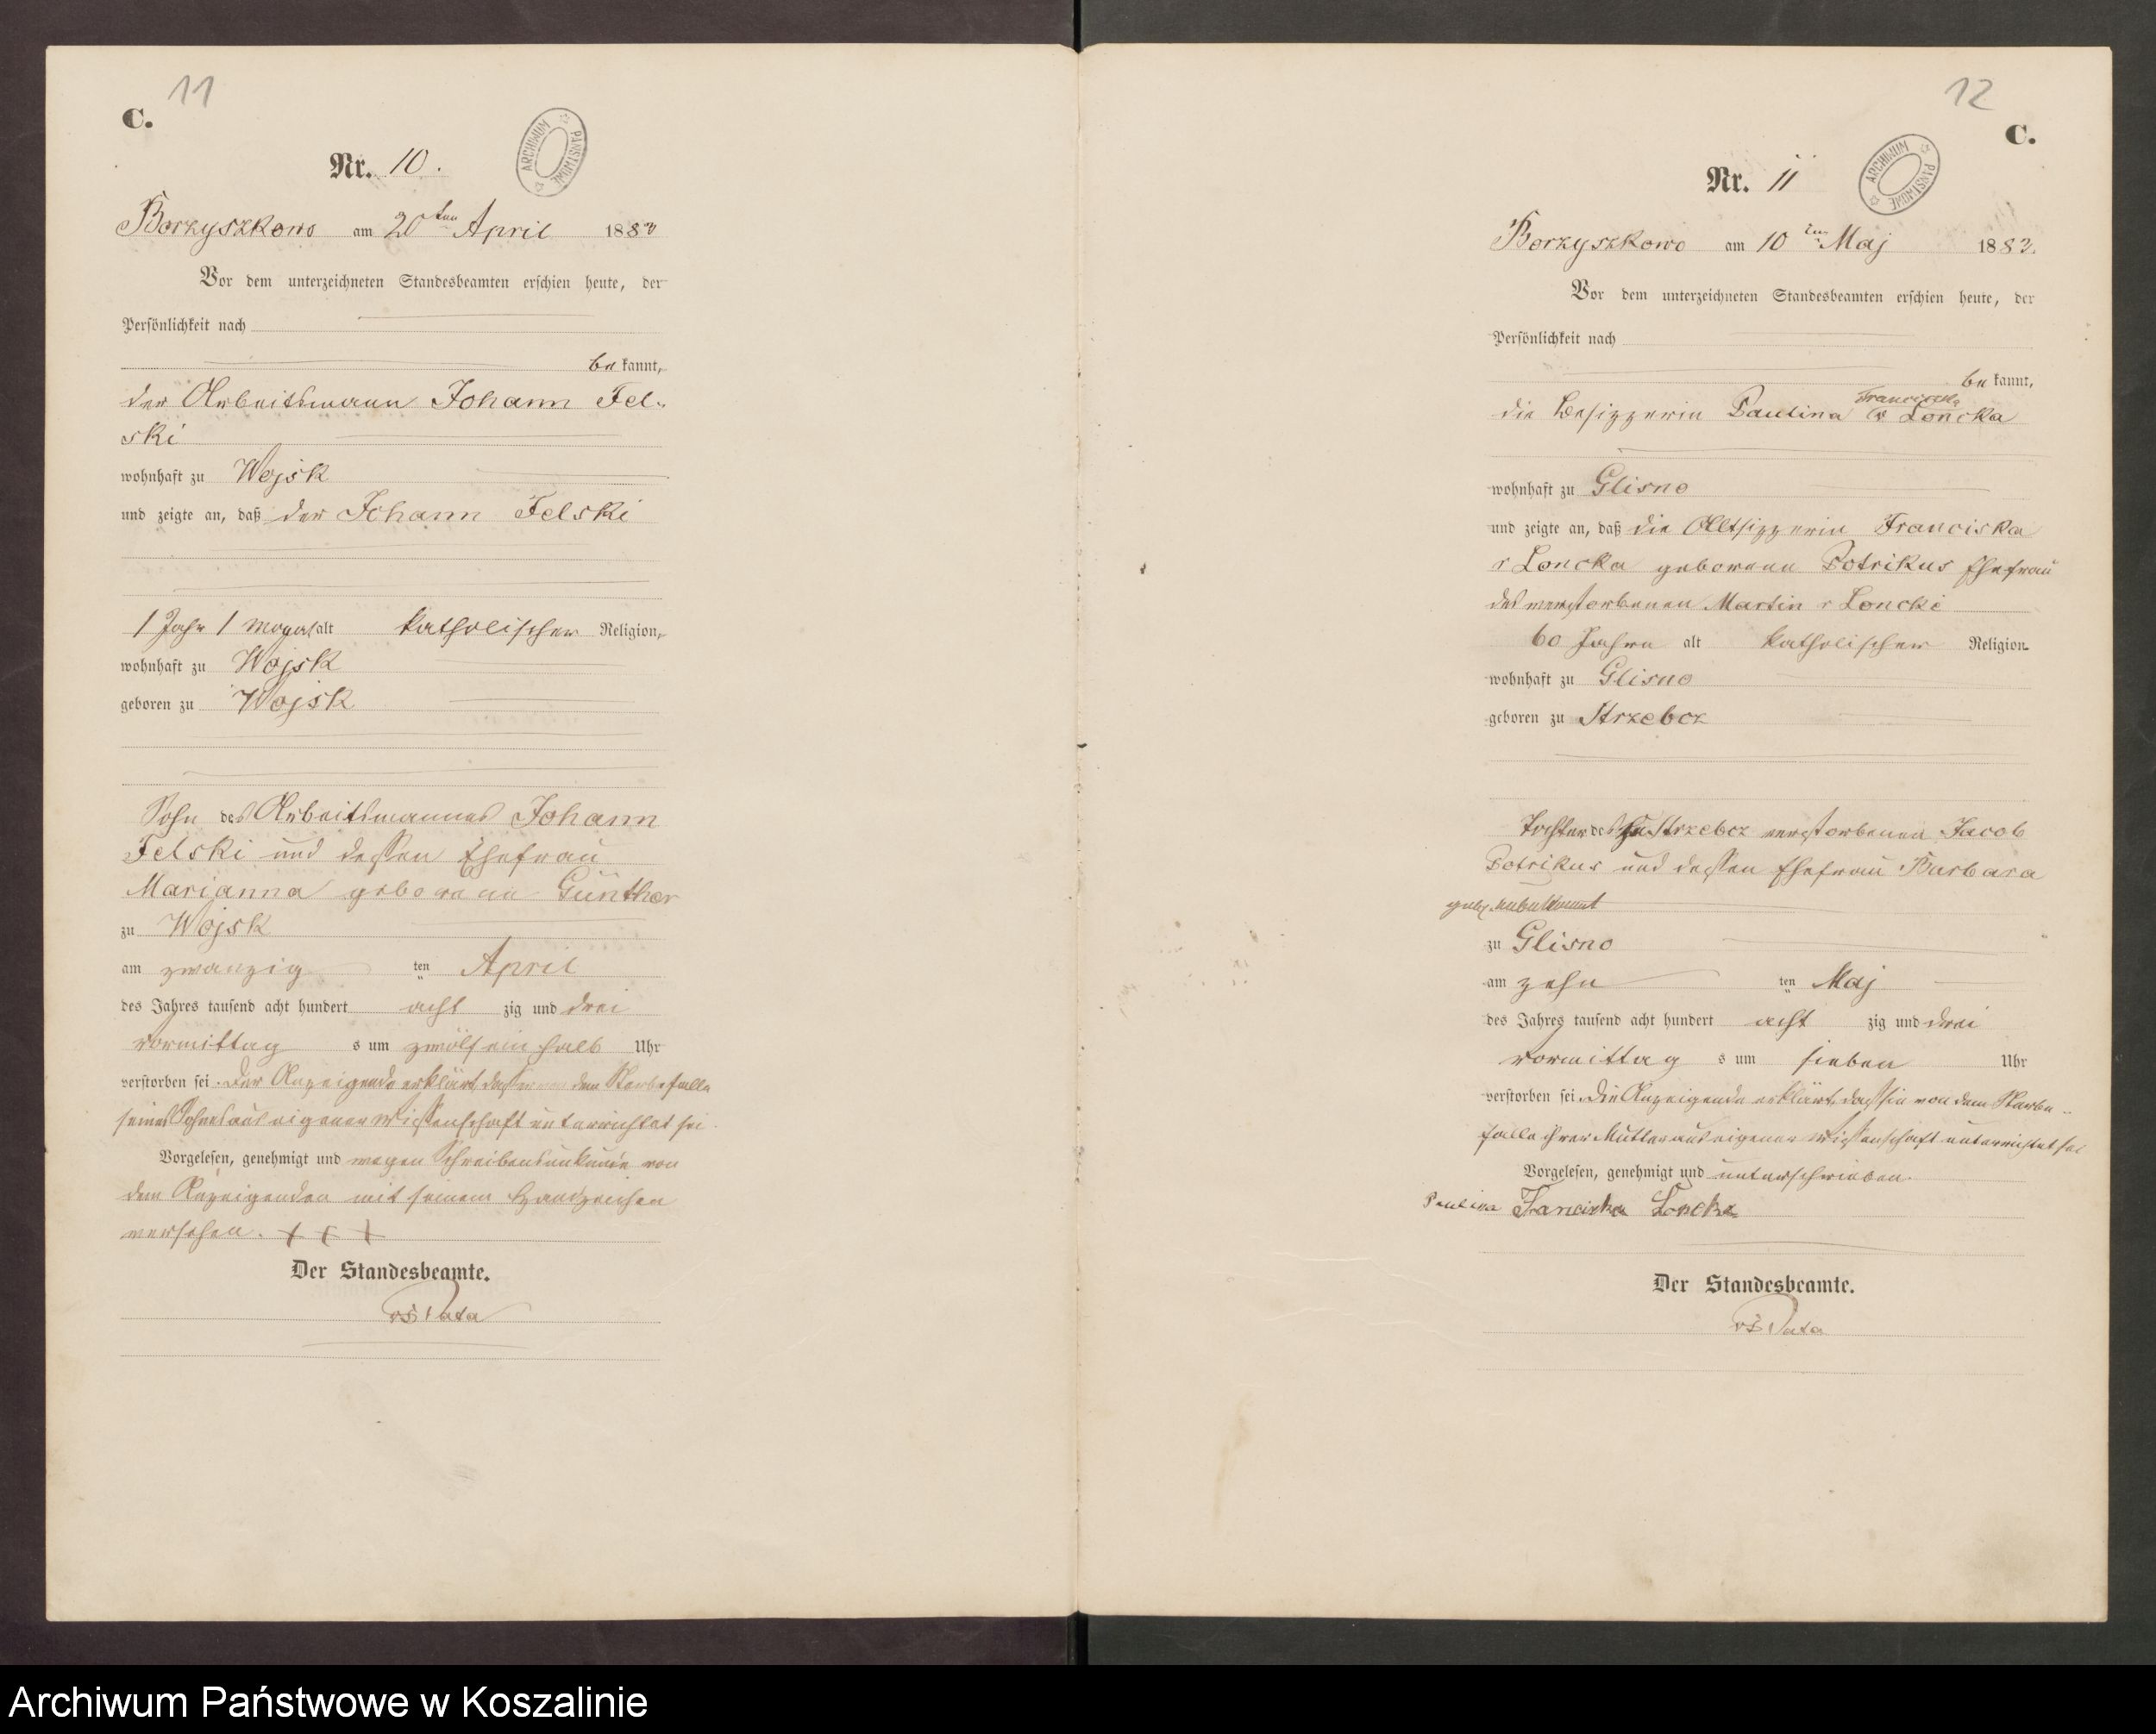 11
C.
ARCHIWUM PAŃSTWOWE
Nr. 10.
Borzyszkowo am 20ten April 1883
Vor dem unterzeichneten Standesbeamten erschien heute, der
Persönlichkeit nach
be kannt,
der Arbeitsmann Johann Fel-
ski
wohnhaft zu Wojsk
und zeigte an, daß der Johann Felski
1 Jahr 1 Monat alt katholischer Religion,
wohnhaft zu Wojsk
geboren zu Wojsk
Sohn des Arbeitsmannes Johann
Felski und dessen Ehefrau
Marianna geborenen Günther
zu Wojsk
am zwanzig ten April
des Jahres tausend acht hundert acht zig und drei
vormittag s um zwölf ein halb Uhr
verstorben sei. Der Anzeigende erklärt, dass er von dem Sterbefalle
seines Sohnes aus eigener Wissenschaft unterrichtet sei.
Vorgelesen, genehmigt und wegen Schreibensunkunde von
dem Anzeigenden mit seinem Handzeichen
versehen. + + +
Der Standesbeamte.
12
C.
ARCHIWUM PAŃSTWOWE
Nr. 11
Borzyszkowo am 10ten Maj 1883.
Vor dem unterzeichneten Standesbeamten erschien heute, der
Persönlichkeit nach
be kannt,
Franciska
die Besizzerin Paulina v Loncka
wohnhaft zu Glisno
und zeigte an, daß die Altsizzerin Franciska
v Loncka geborene Potrikus Ehefrau
des verstorbenen Martin v Loncki
60 Jahre alt katholischer Religion
wohnhaft zu Glisno
geboren zu Strzebcz
Tochter des zu Strzebcz verstorbenen Jacob
Potrikus und dessen Ehefrau Barbara
geb. unbekannt
zu Glisno
am zehn ten Maj
des Jahres tausend acht hundert acht zig und drei
vormittag s um sieben Uhr
verstorben sei. Die Anzeigende erklärt, dass sie von dem Sterbe-
falle ihrer Mutter aus eigener Wissenschaft unterrichtet sei
Vorgelesen, genehmigt und unterschrieben.
Paulina Franciska Loncka
Der Standesbeamte.
Archiwum Państwowe w Koszalinie